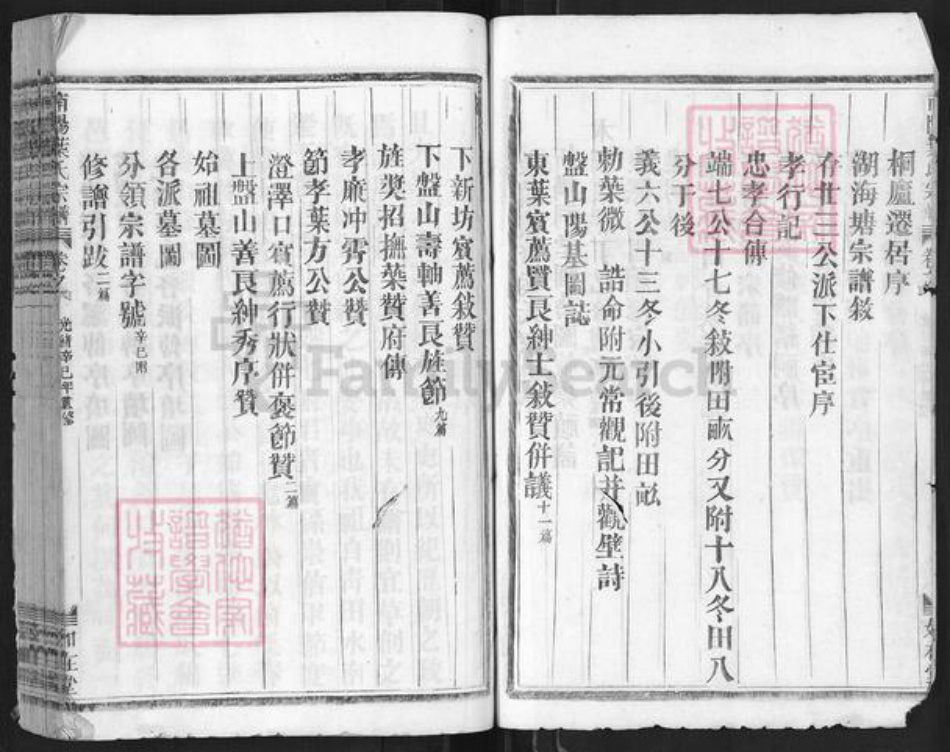 桐廬遷居序
湖海塘宗譜敘
存世三公派下仕宦序
孝行記
忠孝合傳
端七公十七冬敍附田畝分又附十八冬田八
分于後
義六公十三冬小引後附田畝
勅葉微 誥命附元常觀記并觀壁詩
盤山陽基圖誌
東葉賓薦賢良紳士敍贊併議十一篇
下新坊賓薦敍贊
下盤山壽軸善良旌節九篇
旌奬招撫葉贊府傳
孝廉冲霄公贊
節孝葉方公贊
澄澤口賓薦行狀併褒節贊二篇
上盤山善良紳秀序贊
始祖墓圖
各派墓圖
分領宗譜字號辛巳附
修譜引跋二篇
南陽葉氏宗譜
光緒辛巳年重修
FamilySearch